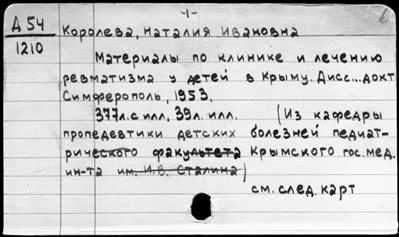 -1-
Д 54
1210
Королева, Наталия Ивановна
Материалы по клинике и лечению
ревматизма у детей в Крыму. Дисс...докт
Симферополь, 1953.
377л.с илл, 39л. илл. (Из кафедры
пропедевтики детских болезней педиат-
рического факультета Крымского гос. мед.
ин-та им. И.В. Сталина)
см. след. карт